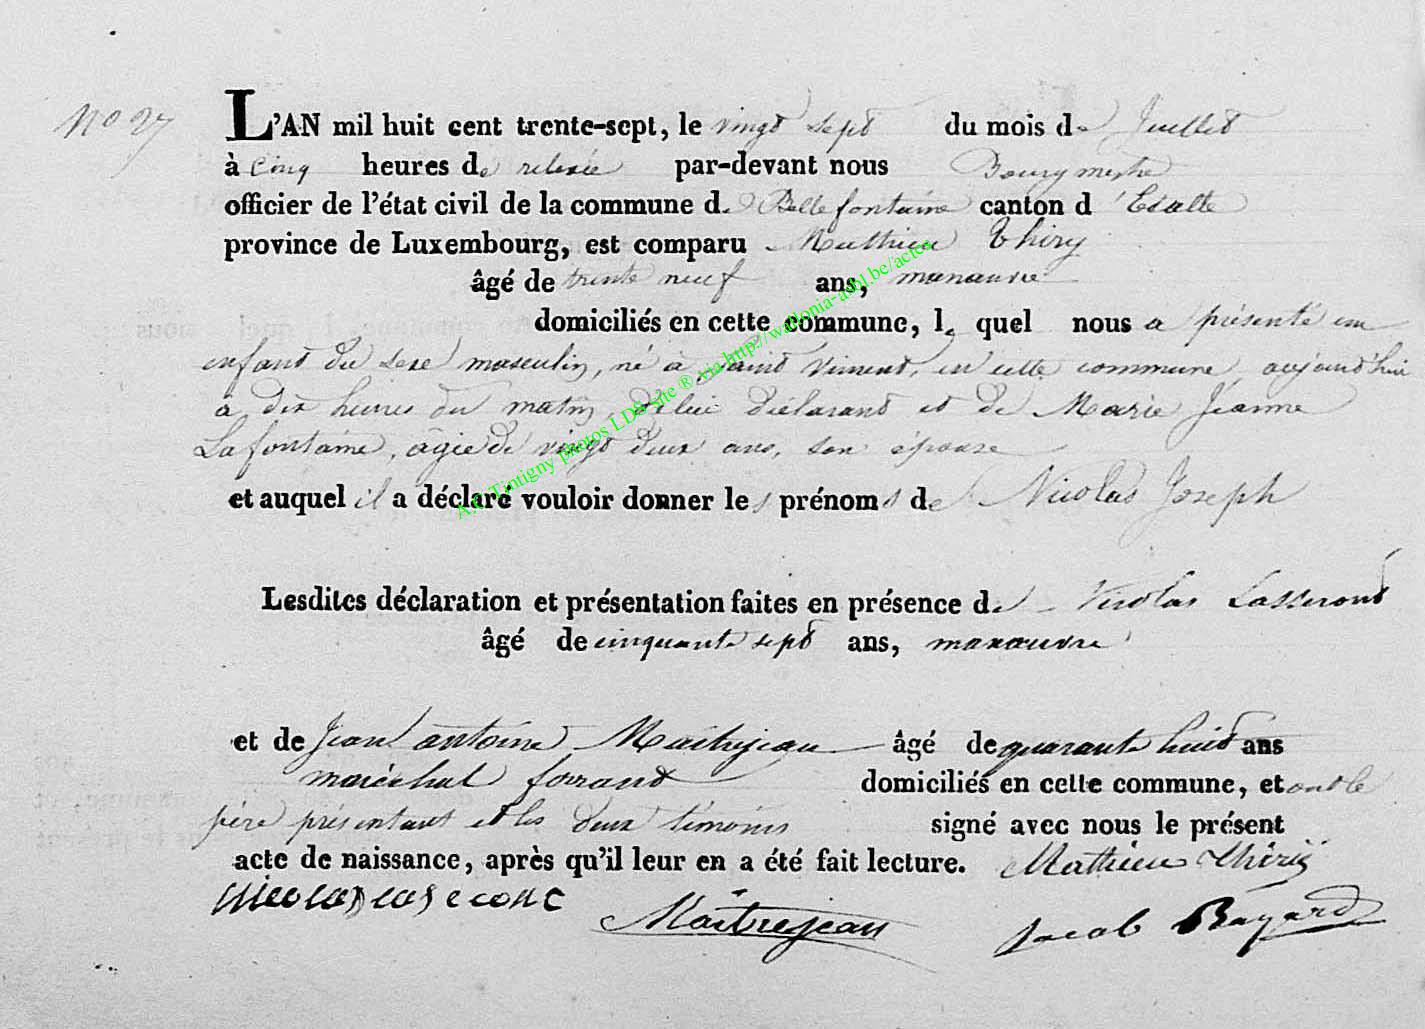 No 27
L'AN mil huit cent trente-sept, le vingt sept du mois de Juillet
à cinq heures de relevée par-devant nous Bourgmestre
officier de l'état civil de la commune de Bellefontaine canton d'Etalle
province de Luxembourg, est comparu Mathieu Thiry
âgé de trente neuf ans, manœuvre
domiciliés en cette commune, le quel nous a présenté un
enfant du sexe masculin, né à Saint Vincent, en cette commune, aujourd'hui
à dix heures du matin, de lui déclarant et de Marie Jeanne
Lafontaine, âgée de vingt deux ans, son épouse
et auquel il a déclaré vouloir donner les prénoms de Nicolas Joseph
Lesdites déclaration et présentation faites en présence de Nicolas Lasseront
âgé de cinquante sept ans, manœuvre
et de Jean antoine Maitrejean âgé de quarante huit ans
maréchal ferrant domiciliés en cette commune, et ont le
père présentant et les deux témoins signé avec nous le présent
acte de naissance, après qu'il leur en a été fait lecture. Mathieu Thiry
Nicolas
Maitrejean
Jacob Bayard
A.C Tintigny photos LDS site ® via http://wallonia-asbl.be/actes